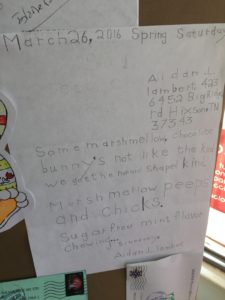 March 26, 2016 Spring Saturday
Aidan J.
lambert, 423
6452 Big Ridge
rd Hixson, TN
37343
Some marshmellow, chocolate
bunny's not like the kind
we get the near shapel kind
Marshmellow peeps
and Chicks.
Sugar free mint flavor
Chewing
Aidan J. lambert